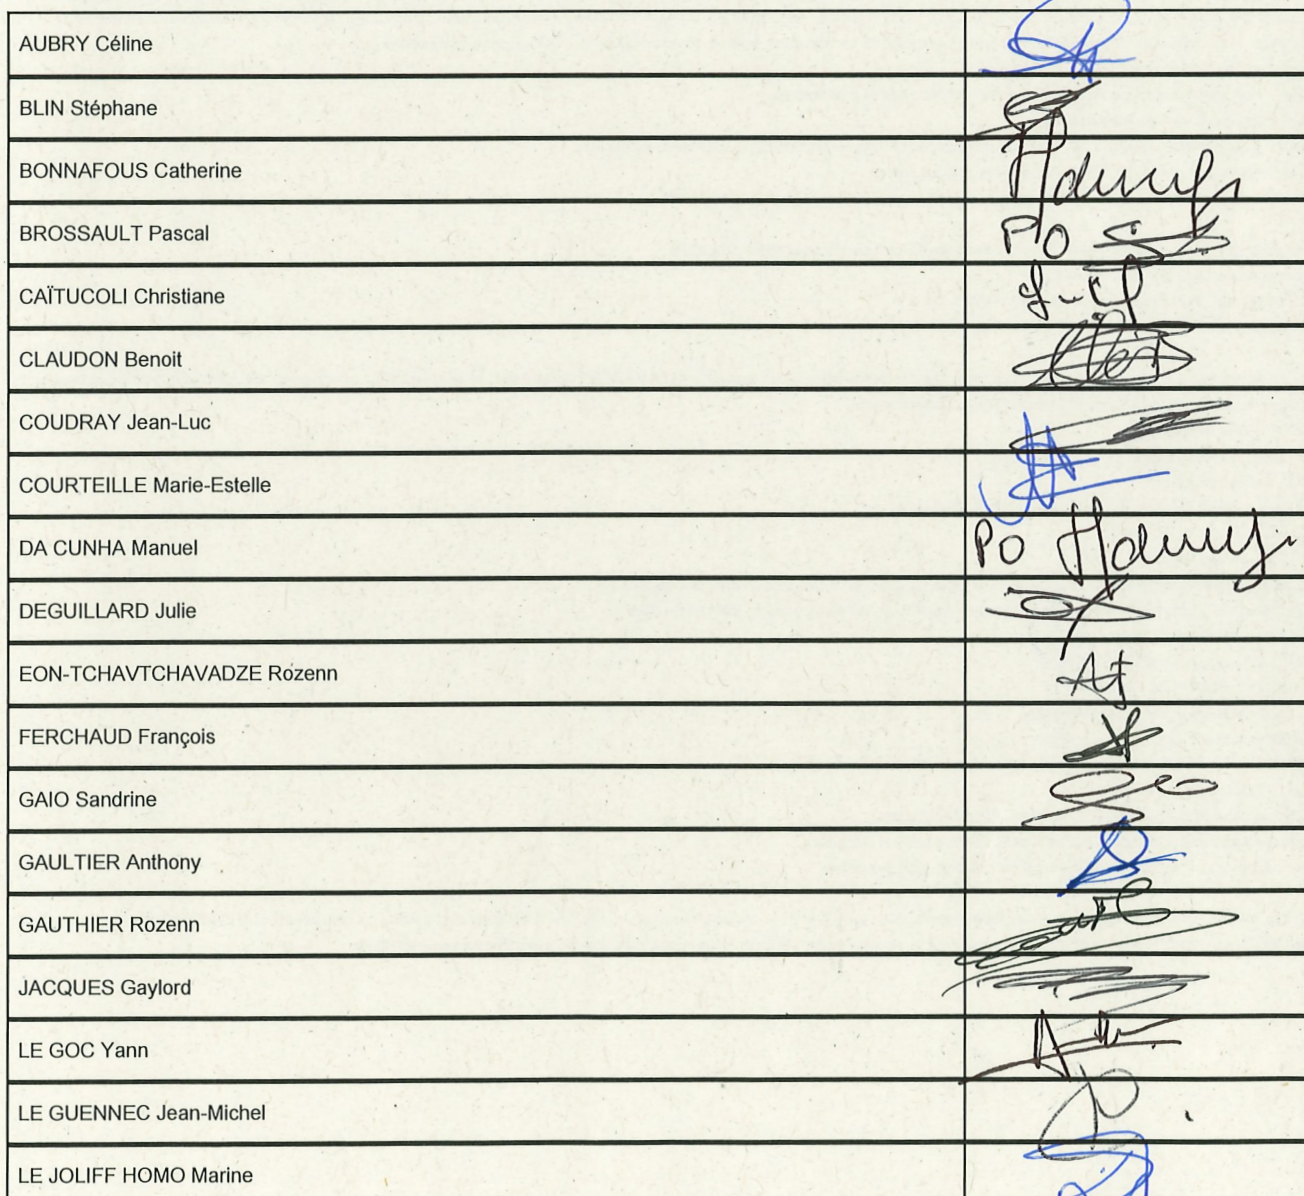 AUBRY Céline
BLIN Stéphane
BONNAFOUS Catherine
BROSSAULT Pascal
PO
CAÏTUCOLI Christiane
CLAUDON Benoit
COUDRAY Jean-Luc
COURTEILLE Marie-Estelle
DA CUNHA Manuel
PO
DEGUILLARD Julie
EON-TCHAVTCHAVADZE Rozenn
FERCHAUD François
GAIO Sandrine
GAULTIER Anthony
GAUTHIER Rozenn
JACQUES Gaylord
LE GOC Yann
LE GUENNEC Jean-Michel
LE JOLIFF HOMO Marine